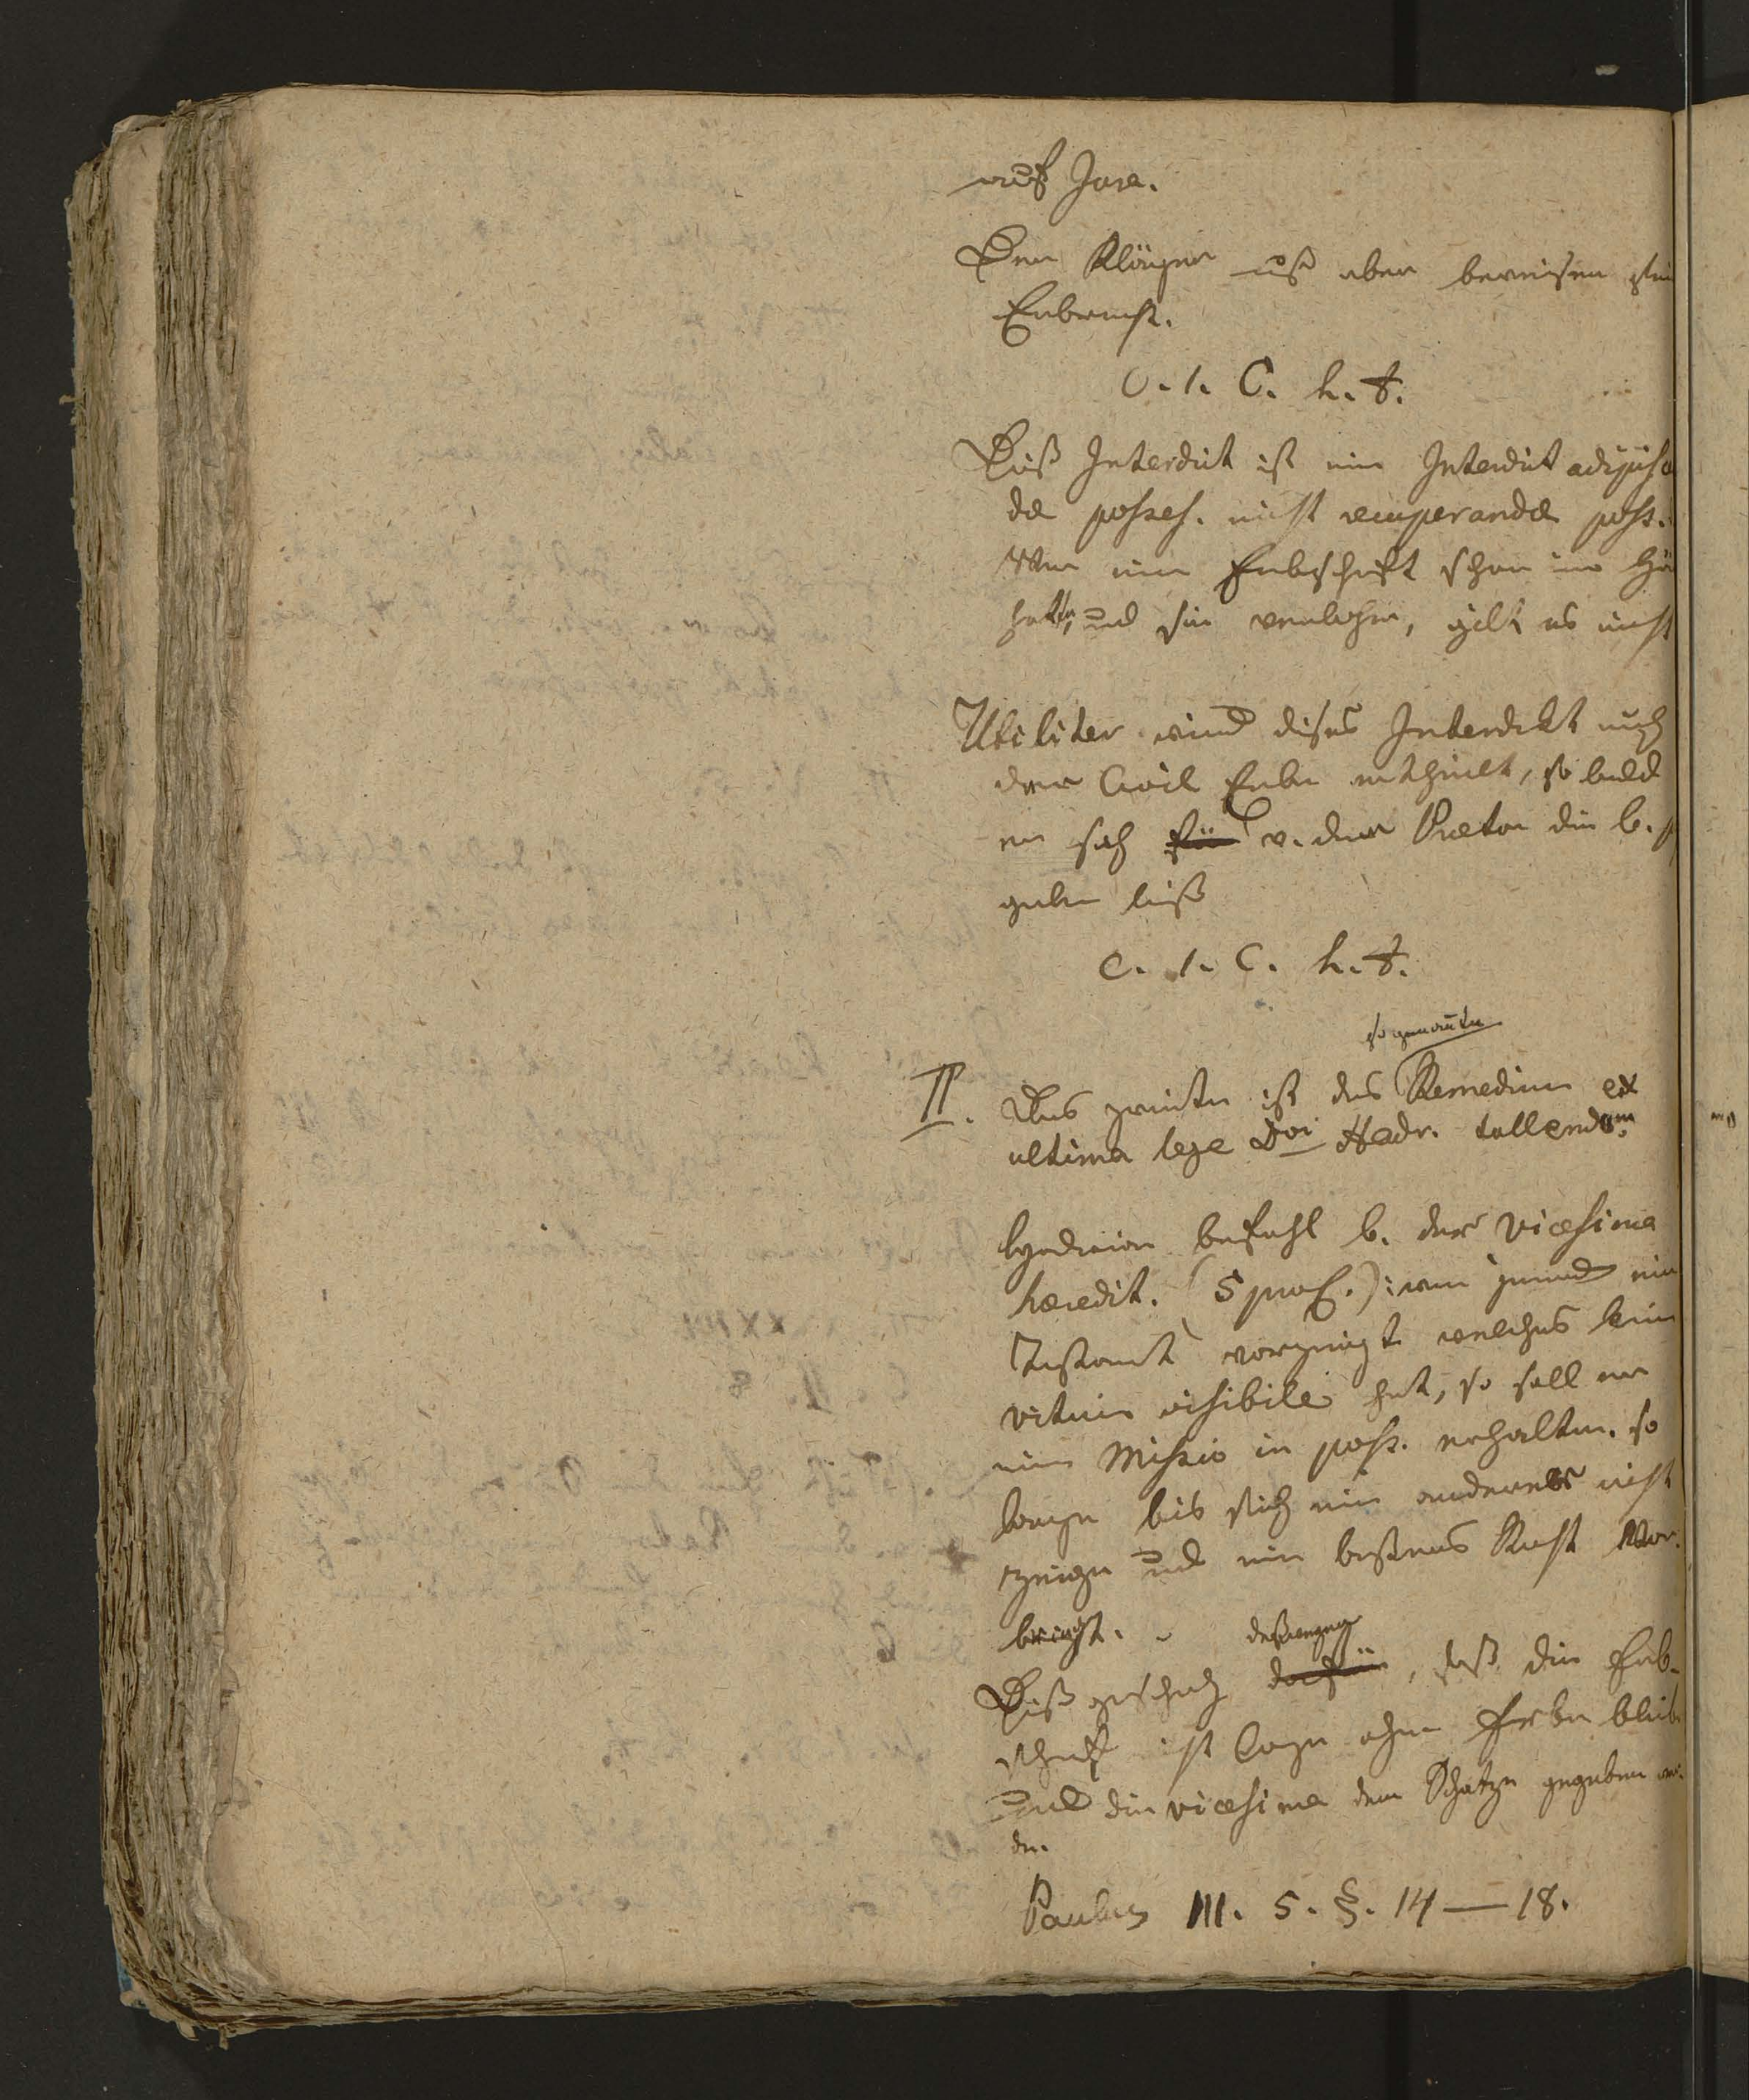 auf Jura.
Der Kläger muß aber beweisen sein
Erbrecht.
C. 1. C. h. t.
Dieß Interdict ist ein Interdict adipisc
dæ posses. nicht recuperandæ poss.
Wer eine Erbschaft schon inne
hatte, und sie verlohr, gilt es nicht
Utiliter wird dieses Interdikt auch
dem Civil Erben ertheilt, so bald
er sich für v. dem Prætor die b. p
geben ließ
C. 1. C. h. t.
so genante
II. Das zweite ist das Remedium ex
ultima lege Dvi Hadr. tollendam.
Hadrian befahl b. der vicesima
hæredit. (5 proC.): wenn jemand ein
Testamt vorzeigt welches kein
vitium visibile hat, so soll er
eine Missio in poss. erhalten. so
lange bis sich ein anderer nicht
zeige und ein besseres Recht vor
bringt.
deßwegen
Dieß geschah dafür, daß die Erb-
schaft nicht lange ohne Erben bleibe
und die vicesima dem Schatze gegeben wer
den.
Paulus III. 5. §. 14 — 18.